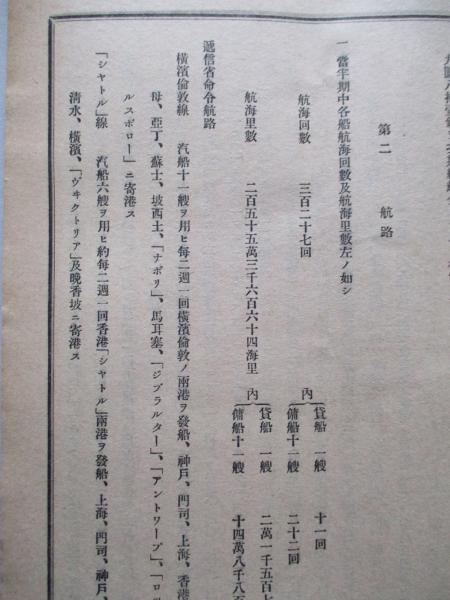 第二 航路
一 當半期中各船航海回數及航海里數左ノ如シ
航海回數 三百二十七回
內 貸船 一艘 十一回
傭船十一艘 二十二回
航海里數 二百五十五萬三千六百六十四海里
內 貸船 一艘 二萬一千五百七
傭船十一艘 十四萬八千八百
遞信省命令航路
橫濱倫敦線 汽船十一艘ヲ用ヒ每二週一回橫濱倫敦ノ兩港ヲ發船、神戶、門司、上海、香港
母、亞丁、蘇士、坡西土、「ナポリ」、馬耳塞、「ジブラルター」、「アントワープ」、「ロッ
ルスボロー」ニ寄港ス
「シヤトル」線 汽船六艘ヲ用ヒ約每二週一回香港「シヤトル」兩港ヲ發船、上海、門司、神戶、
淸水、橫濱、「ヴヰクトリア」及晚香坡ニ寄港ス